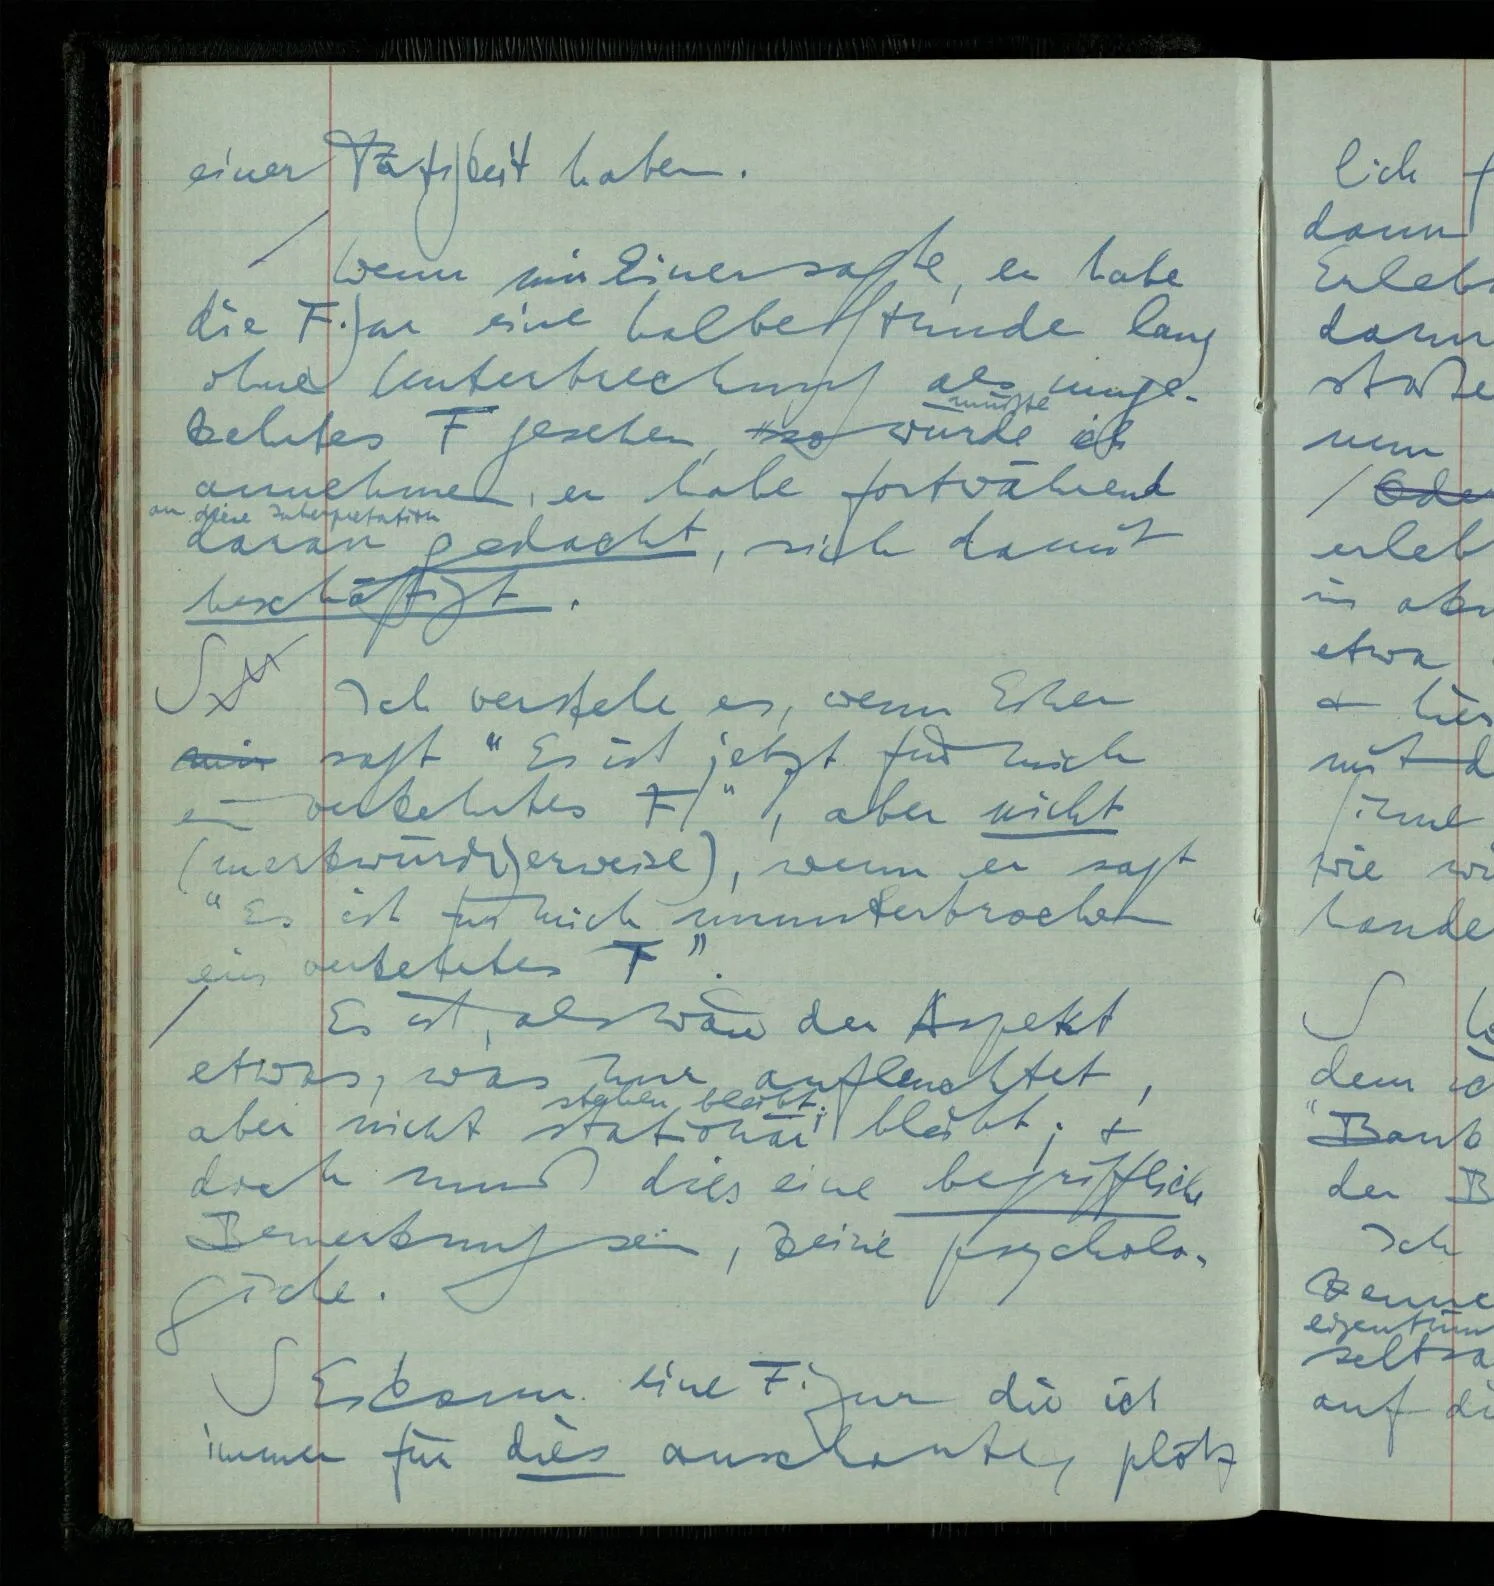 einer Tätigkeit haben.
/ Wenn mir Einer sagte, er habe
die Figur eine halbe Stunde lang
ohne Unterbrechung als umge-
kehrtes F gesehen, so würde ich
müßte
annehmen, er habe fortwährend
an diese Interpretation
daran gedacht, sich damit
beschäftigt.
Ich verstehe es, wenn Einer
mir sagt "Es ist jetzt für mich
ein verkehrtes F", aber nicht
(merkwürdigerweise), wenn er sagt
"Es ist für mich ununterbrochen
ein verkehrtes F".
/ Es ist, als wäre der Aspekt
etwas, was nur aufleuchtet,
aber nicht stationär bleibt; +
stehen bleibt;
doch muß dies eine begriffliche
Bemerkung sein, keine psycholo-
gische.
S Es kann eine Figur die ich
immer für dies anschaute, plötz
lich
dann
Erleb
dann
nun
/ Oder
erleb
in
etwa
+ hie
mit d
wie wi
hande
S
dem ic
"Bank
der B
Ich
kenne
eigentüm
seltsa
auf di